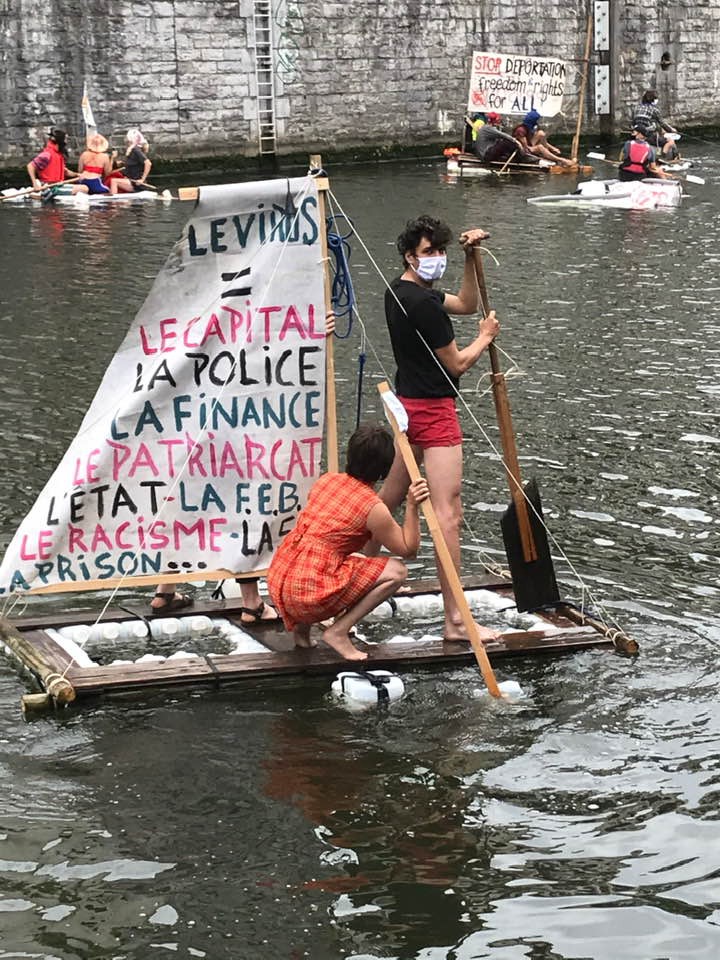 STOP DEPORTATION
freedom & rights
for ALL
LE VIRUS
=
LE CAPITAL
LA POLICE
LA FINANCE
LE PATRIARCAT
L'ÉTAT-LA F.E.B.
LE RACISME-LA
LA PRISON...